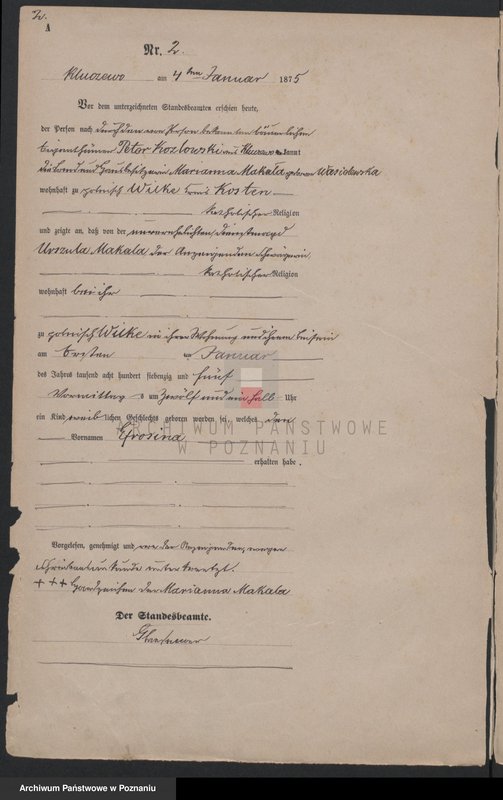 2.
A
Nr. 2.
Kluczewo am 4ten Januar 1875
Vor dem unterzeichneten Standesbeamten erschien heute,
der Person nach durch den von Person bekannten bäuerlichen
Eigenthümer Peter Kozlowski aus Kluczewo kannt
die und Hausbesitzerin Marianna Makala geborne Wasielewska
wohnhaft zu polnisch Wilke Kreis Kosten
katholischer Religion
und zeigte an, daß von der unverehelichten Dienstmagd
Urszula Makala der Anzeigenden Schwägerin,
katholischer Religion
wohnhaft bei ihr
zu polnisch Wilke in ihrer Wohnung und ihrem Beisein
am ersten Januar
des Jahres tausend acht hundert siebenzig und fünf
Vormittag s um Zwölf und ein halb Uhr
ein Kind weib lichen Geschlechts geboren worden sei, welches den
Vornamen Efrosina
erhalten habe.
Vorgelesen, genehmigt und von der Anzeigenden, wegen
unterkreuzt.
+++ Handzeichen der Marianna Makala
Der Standesbeamte.
ARCHIWUM PAŃSTWOWE
W POZNANIU
Archiwum Państwowe w Poznaniu